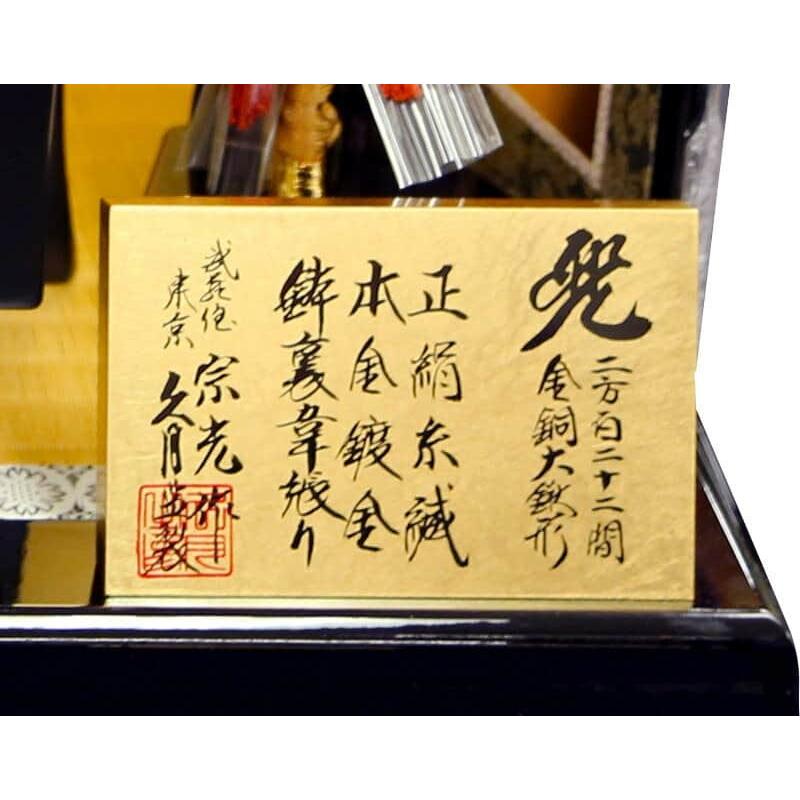 兜
二方白二十二間
金銅大鍬形
正絹糸縅
本金鍍金
鉢裏韋張り
武蔵住 宗光作
東京 久月監製